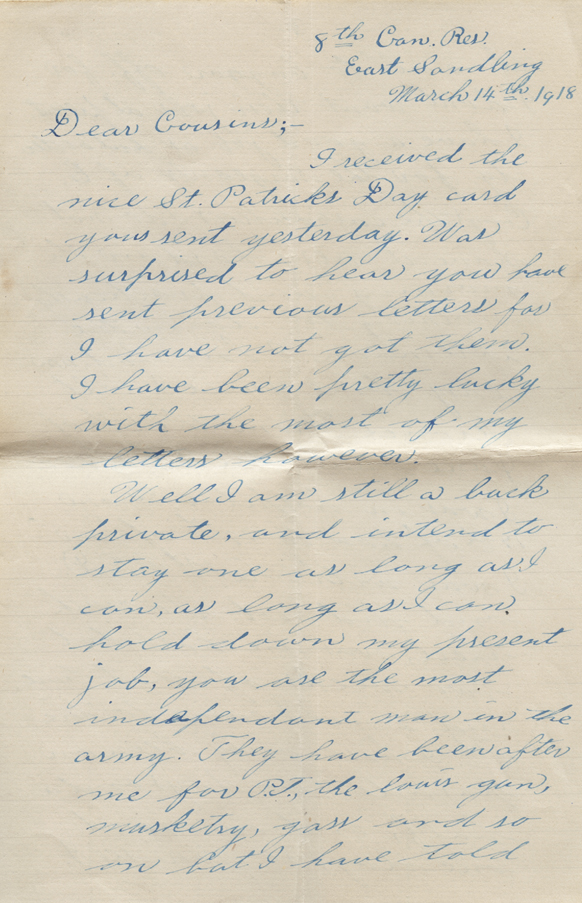 8th Can. Res.
East Sandling
March 14th. 1918
Dear Cousins;-
I received the
nice St. Patricks Day card
yous sent yesterday. Was
surprised to hear you have
sent previous letters for
I have not got them.
I have been pretty lucky
with the most of my
letters however.
Well I am still a buck
private, and intend to
stay one as long as I
can, as long as I can
hold down my present
job, you are the most
independant man in the
army. They have been after
me for P.T., the louis gun,
musketry, gass and so
on but I have told